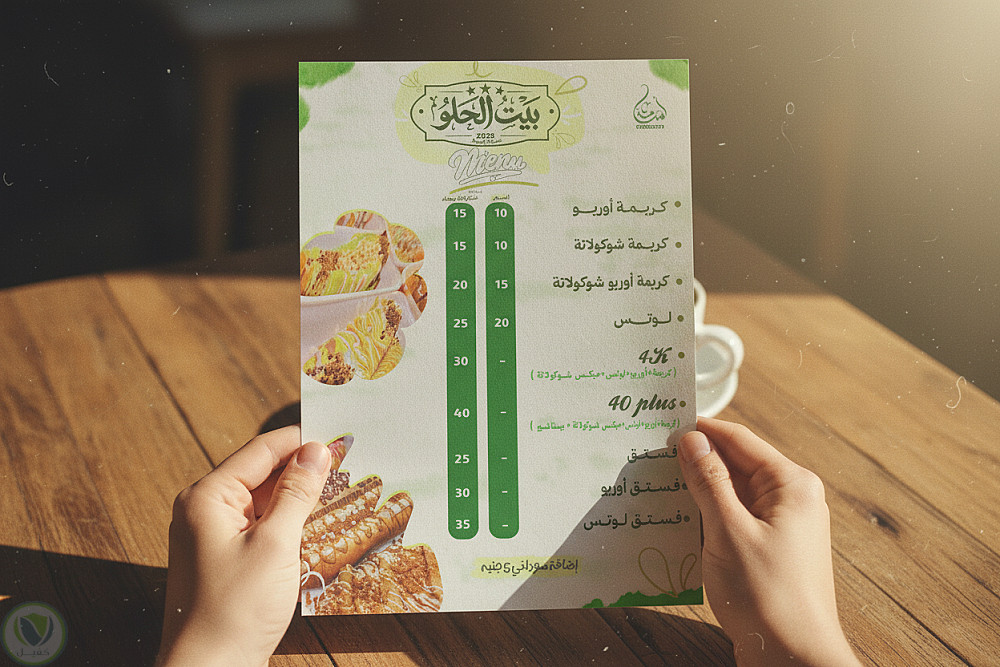 بيت الحلو
2025
Menu
كريمة أوريو 10 15
كريمة شوكولاتة 10 15
كريمة أوريو شوكولاتة 15 20
لوتس 20 25
4K - 30
(كريمة+أوريو+لوتس+ميكس شوكولاتة)
40 plus - 40
فستق - 25
فستق أوريو - 30
فستق لوتس - 35
إضافة سوداني 5 جنيه